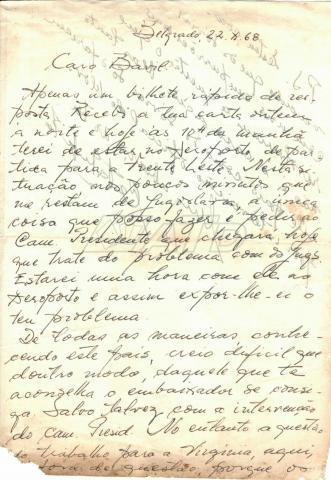 Belgrado, 22.X.68
Caro Basil:
Apenas um bilhete rápido de res-
posta. Recebi a tua carta ontem
à noite e hoje às 10h da manhã
terei de estar no Aeroporto de par-
tida para a Frente Leste. Nesta si-
tuação nos poucos minutos que
me restam de Jugoslávia, a única
coisa que posso fazer é pedir ao
Cam. Presidente que chegará hoje
que trate do problema com os Jugs.
Estarei uma hora com ele no
Aeroporto e assim expor-lhe-ei o
teu problema.
De todas as maneiras, conhe-
cendo este país, creio difícil que
doutro modo, daquele que te
aconselha o embaixador se consi-
ga. Salvo talvez, com a intervenção
do cam. Presid. No entanto a questão
do trabalho para a Virgínia, aqui,
fora de questão, porque os